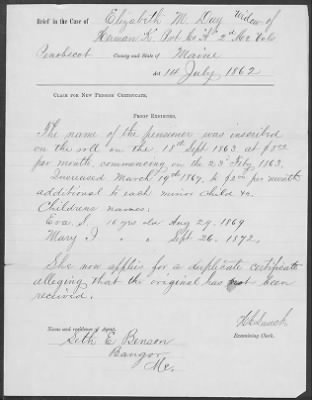 Brief in the Case of Elizabeth M. Day Widow of
Heman K. Pvt Co "A" 2d Me Vols
Penobscot County and State of Maine
Act 14 July, 1862
CLAIM FOR NEW PENSION CERTIFICATE.
PROOF EXHIBITED.
The name of the pensioner was inscribed
on the roll on the 18th Sept 1863 at $8.00
per month, commencing on the 23d Feby 1863.
Increased March 19th 1867, to $2.00 per month
additional to each minor child
Childrens names:
Eva S. 16 yrs old Aug 29, 1869
Mary I " " Sept 26, 1872.
She now applies for a duplicate certificate
alleging that the original has not been
received.
Examining Clerk.
Name and residence of Agent.
Seth E Benson
Bangor
Me.